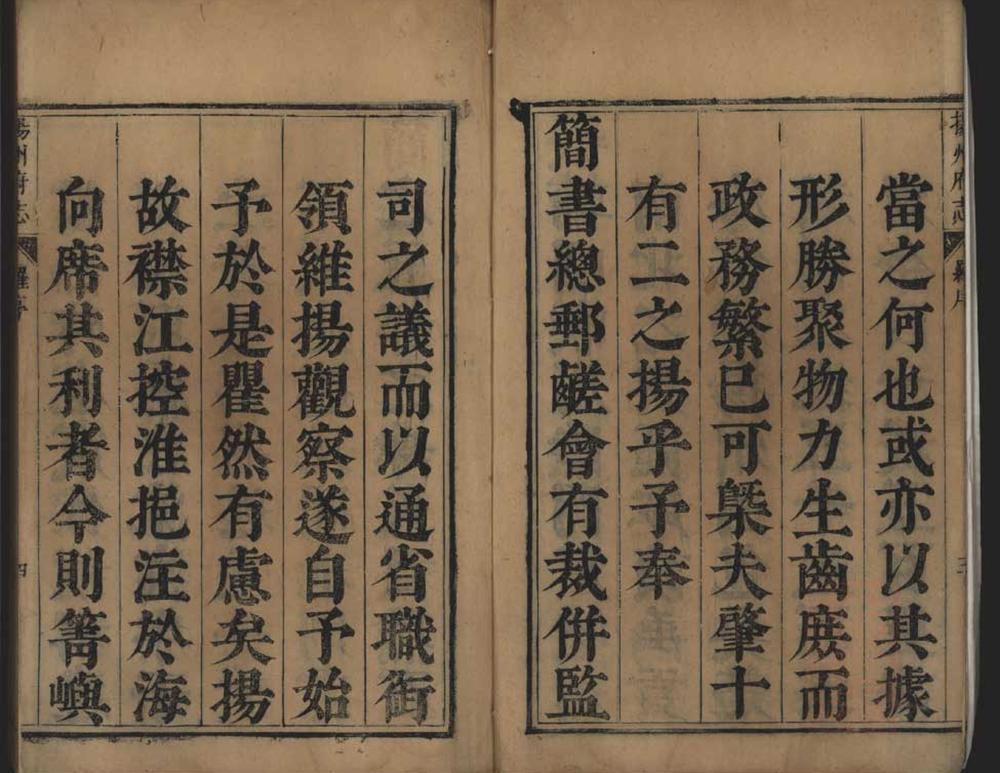 揚州府志 羅序
當之何也或亦以其據
形勝聚物力生齒庶而
政務繁已可槩夫肇十
有二之揚乎予奉
簡書總郵鹺會有裁併監
司之議而以通省職銜
領維揚觀察遂自予始
予於是瞿然有慮矣揚
故襟江控淮挹注於海
向席其利者今則篙嶼
揚州府志 羅序 四